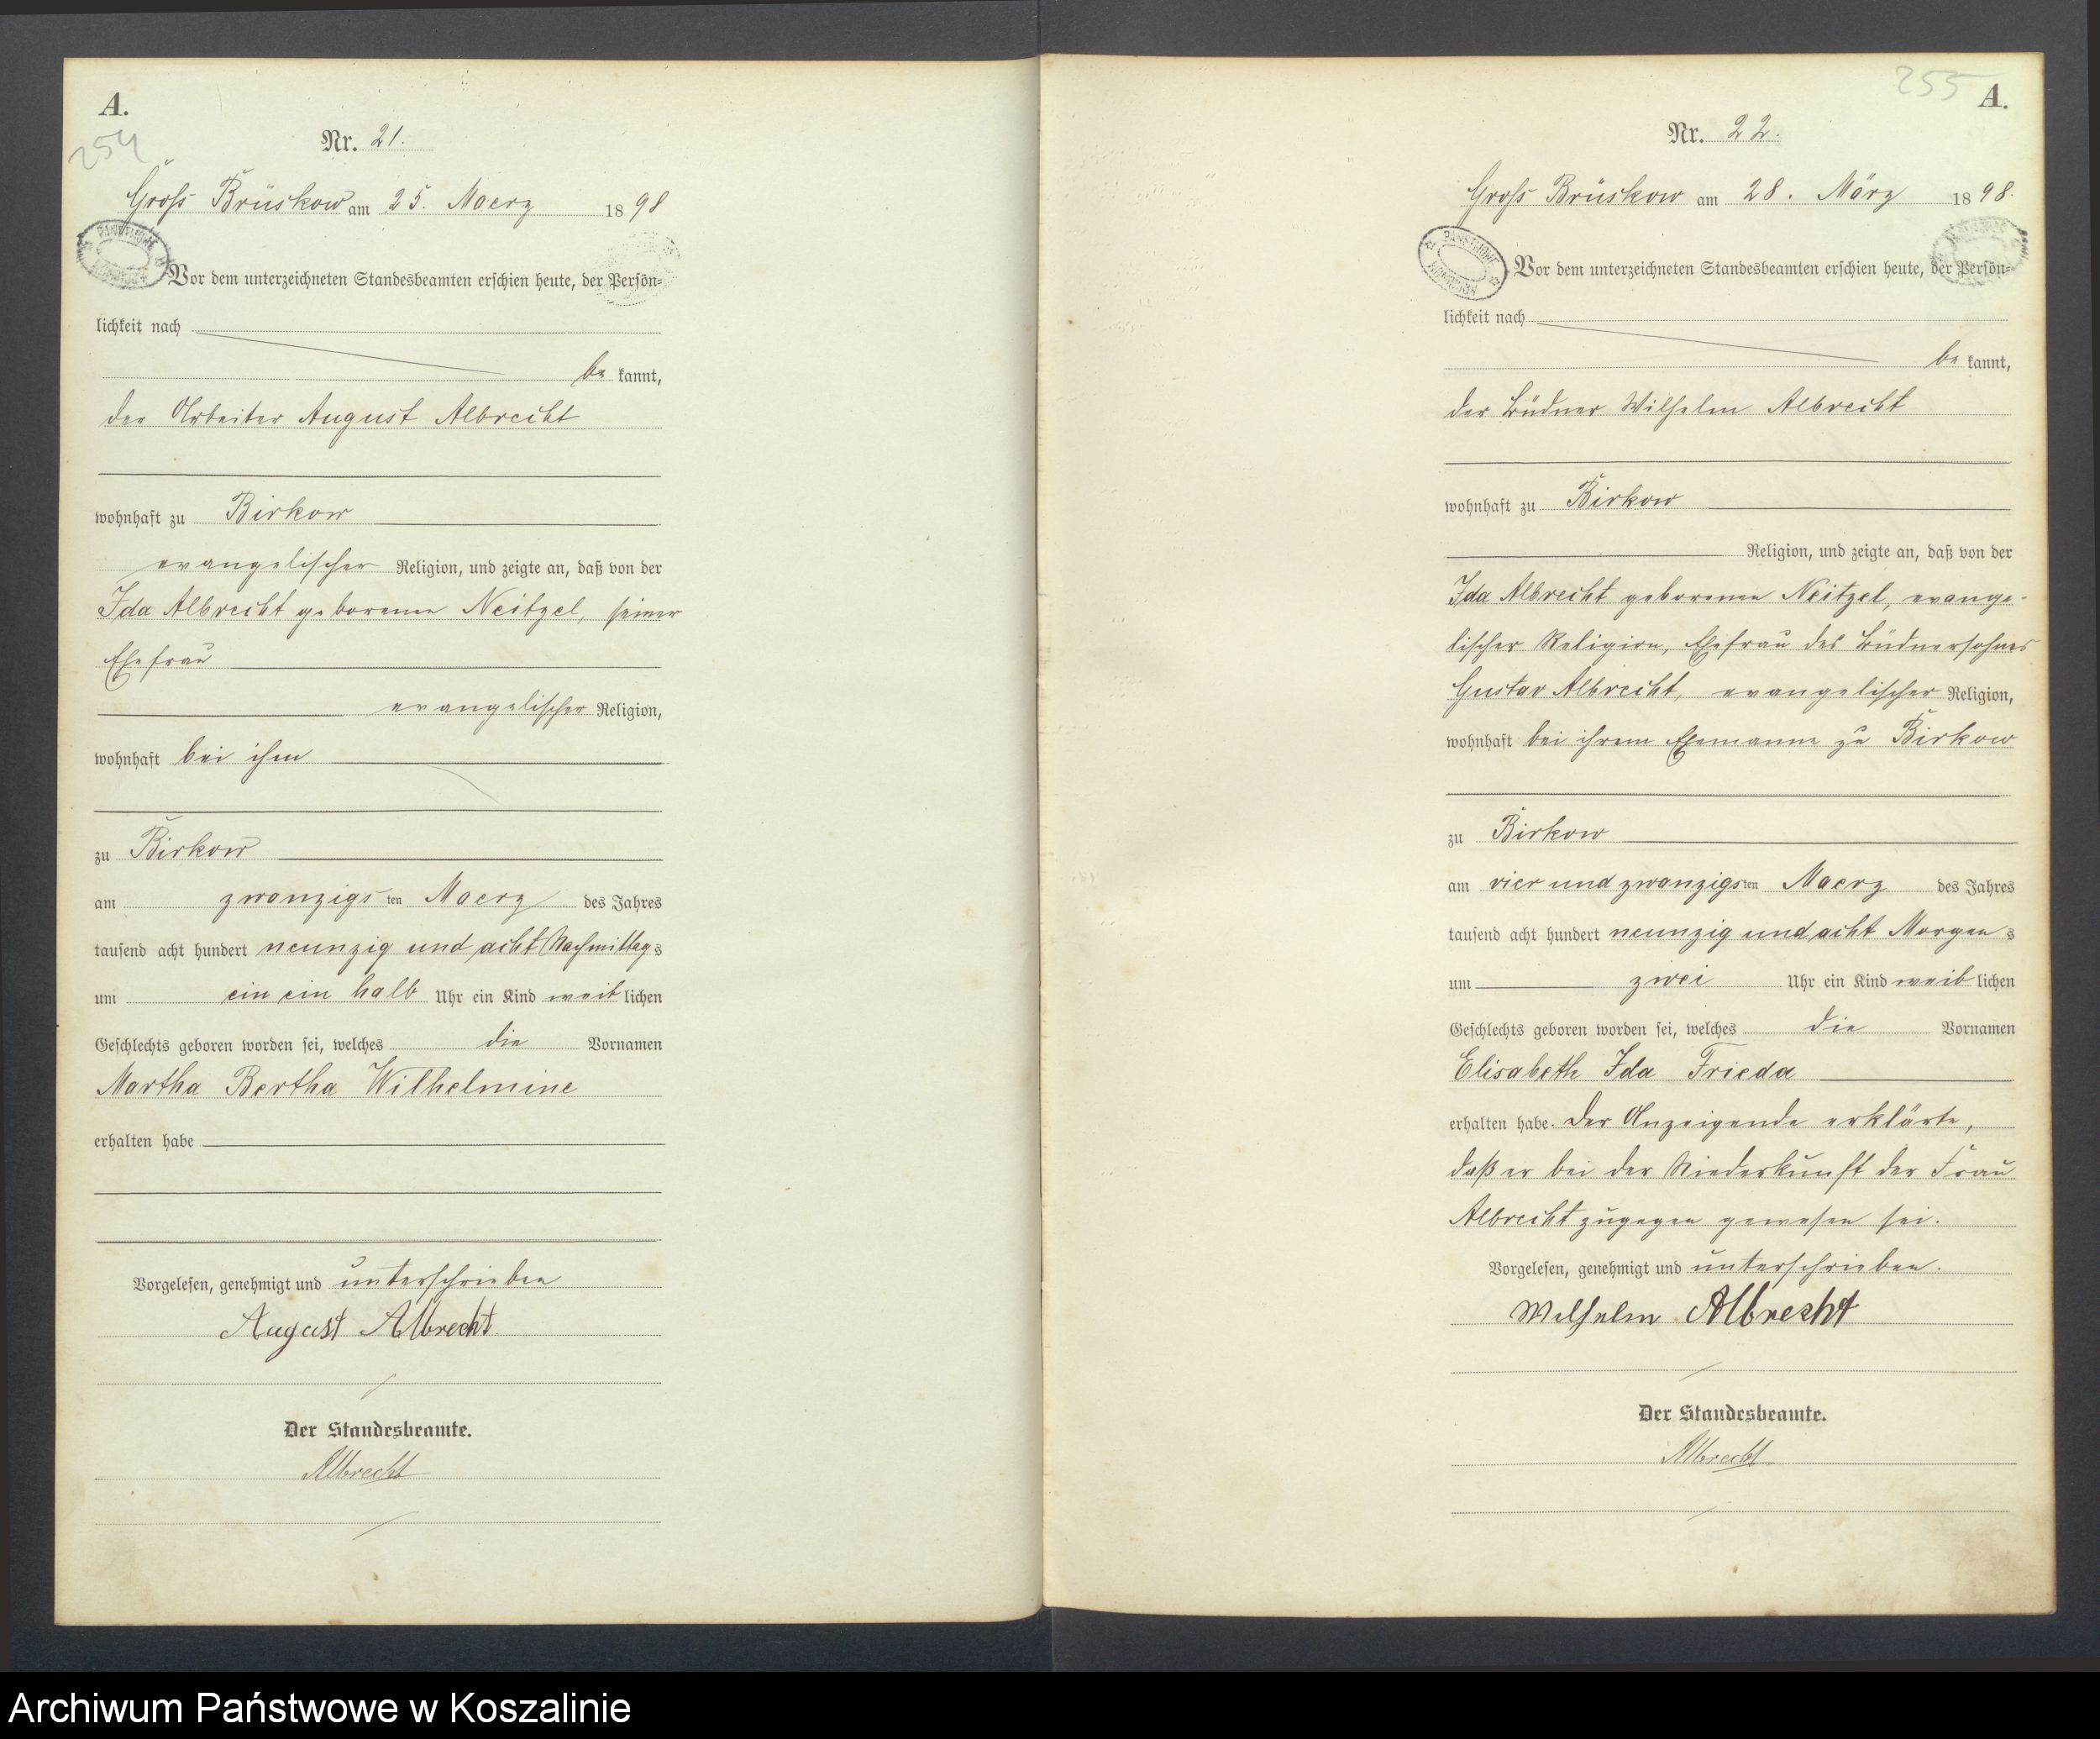 A.
254
Nr. 21.
Gross Brüskow am 25. Maerz 1898
Vor dem unterzeichneten Standesbeamten erschien heute, der Persön-
lichkeit nach
be kannt,
der Arbeiter August Albrecht
wohnhaft zu Birkow
evangelischer Religion, und zeigte an, daß von der
Ida Albrecht geborenen Neitzel, seiner
Ehefrau
evangelischer Religion,
wohnhaft bei ihm
zu Birkow
am zwanzigsten Maerz des Jahres
tausend acht hundert neunzig und acht Nachmittags
um ein ein halb Uhr ein Kind weiblichen
Geschlechts geboren worden sei, welches die Vornamen
Martha Bertha Wilhelmine
erhalten habe
Vorgelesen, genehmigt und unterschrieben
August Albrecht
Der Standesbeamte.
Albrecht
255
A.
Nr. 22.
Gross Brüskow am 28. März 1898.
Vor dem unterzeichneten Standesbeamten erschien heute, der Persön-
lichkeit nach
be kannt,
der Büdner Wilhelm Albrecht
wohnhaft zu Birkow
Religion, und zeigte an, daß von der
Ida Albrecht geborenen Neitzel, evange-
lischer Religion, Ehefrau des Büdnersohnes
Gustav Albrecht, evangelischer Religion,
wohnhaft bei ihrem Ehemanne zu Birkow
zu Birkow
am vier und zwanzigsten Maerz des Jahres
tausend acht hundert neunzig und acht Morgens
um zwei Uhr ein Kind weiblichen
Geschlechts geboren worden sei, welches die Vornamen
Elisabeth Ida Frieda
erhalten habe. Der Anzeigende erklärte,
daß er bei der Niederkunft der Frau
Albrecht zugegen gewesen sei.
Vorgelesen, genehmigt und unterschrieben.
Wilhelm Albrecht
Der Standesbeamte.
Albrecht
Archiwum Państwowe w Koszalinie